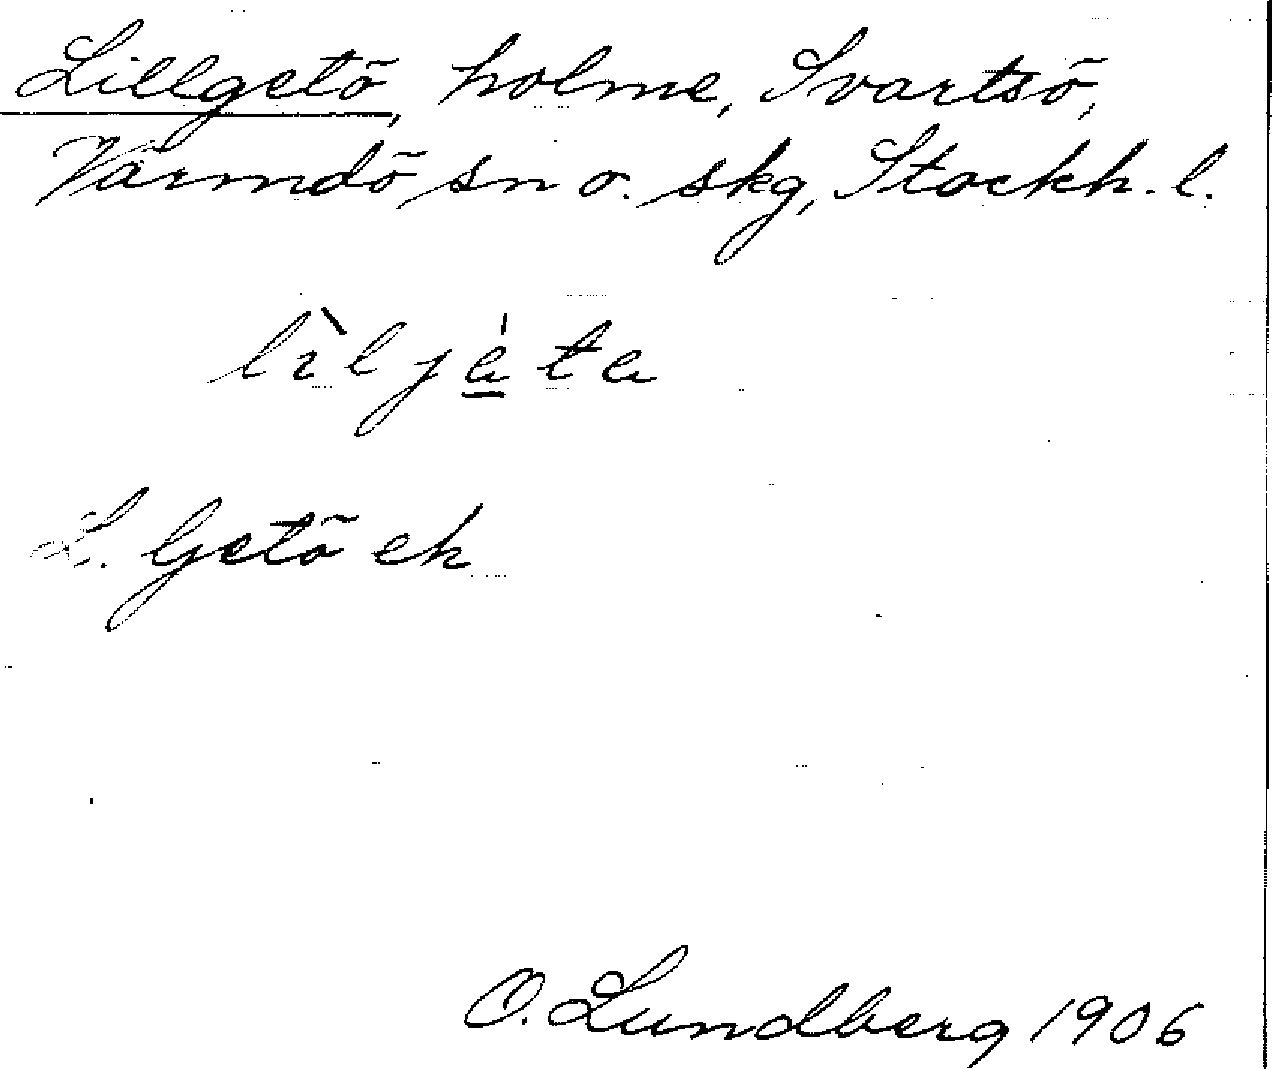 Lillgetö, holme, Svartsö,
Värmdö sn o. skg, Stockh. l.
lìljéta
L. Getö ek
O. Lundberg 1906